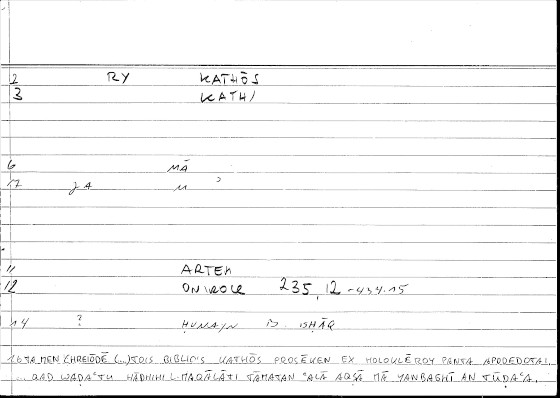 2 RY KATHŌS
3 KATH/
6 MĀ
17 JA M
11 ARTEM
12 ONIROCR 235, 12 - 434.15
14 ? ḤUNAJN B. ISḤĀQ
16 TA MEN CHREIŌDĒ (...) TOIS BIBLIO'S KATHŌS PROSĒKEN EX HOLOKLĒROY PANTA APODEDOTAI.
... QAD WAḌAʿTU HĀDHIHI L-MAQĀLĀTI TĀMATAN ʿALĀ AQṢĀ MĀ YANBAGHĪ AN TŪḌAʿA.